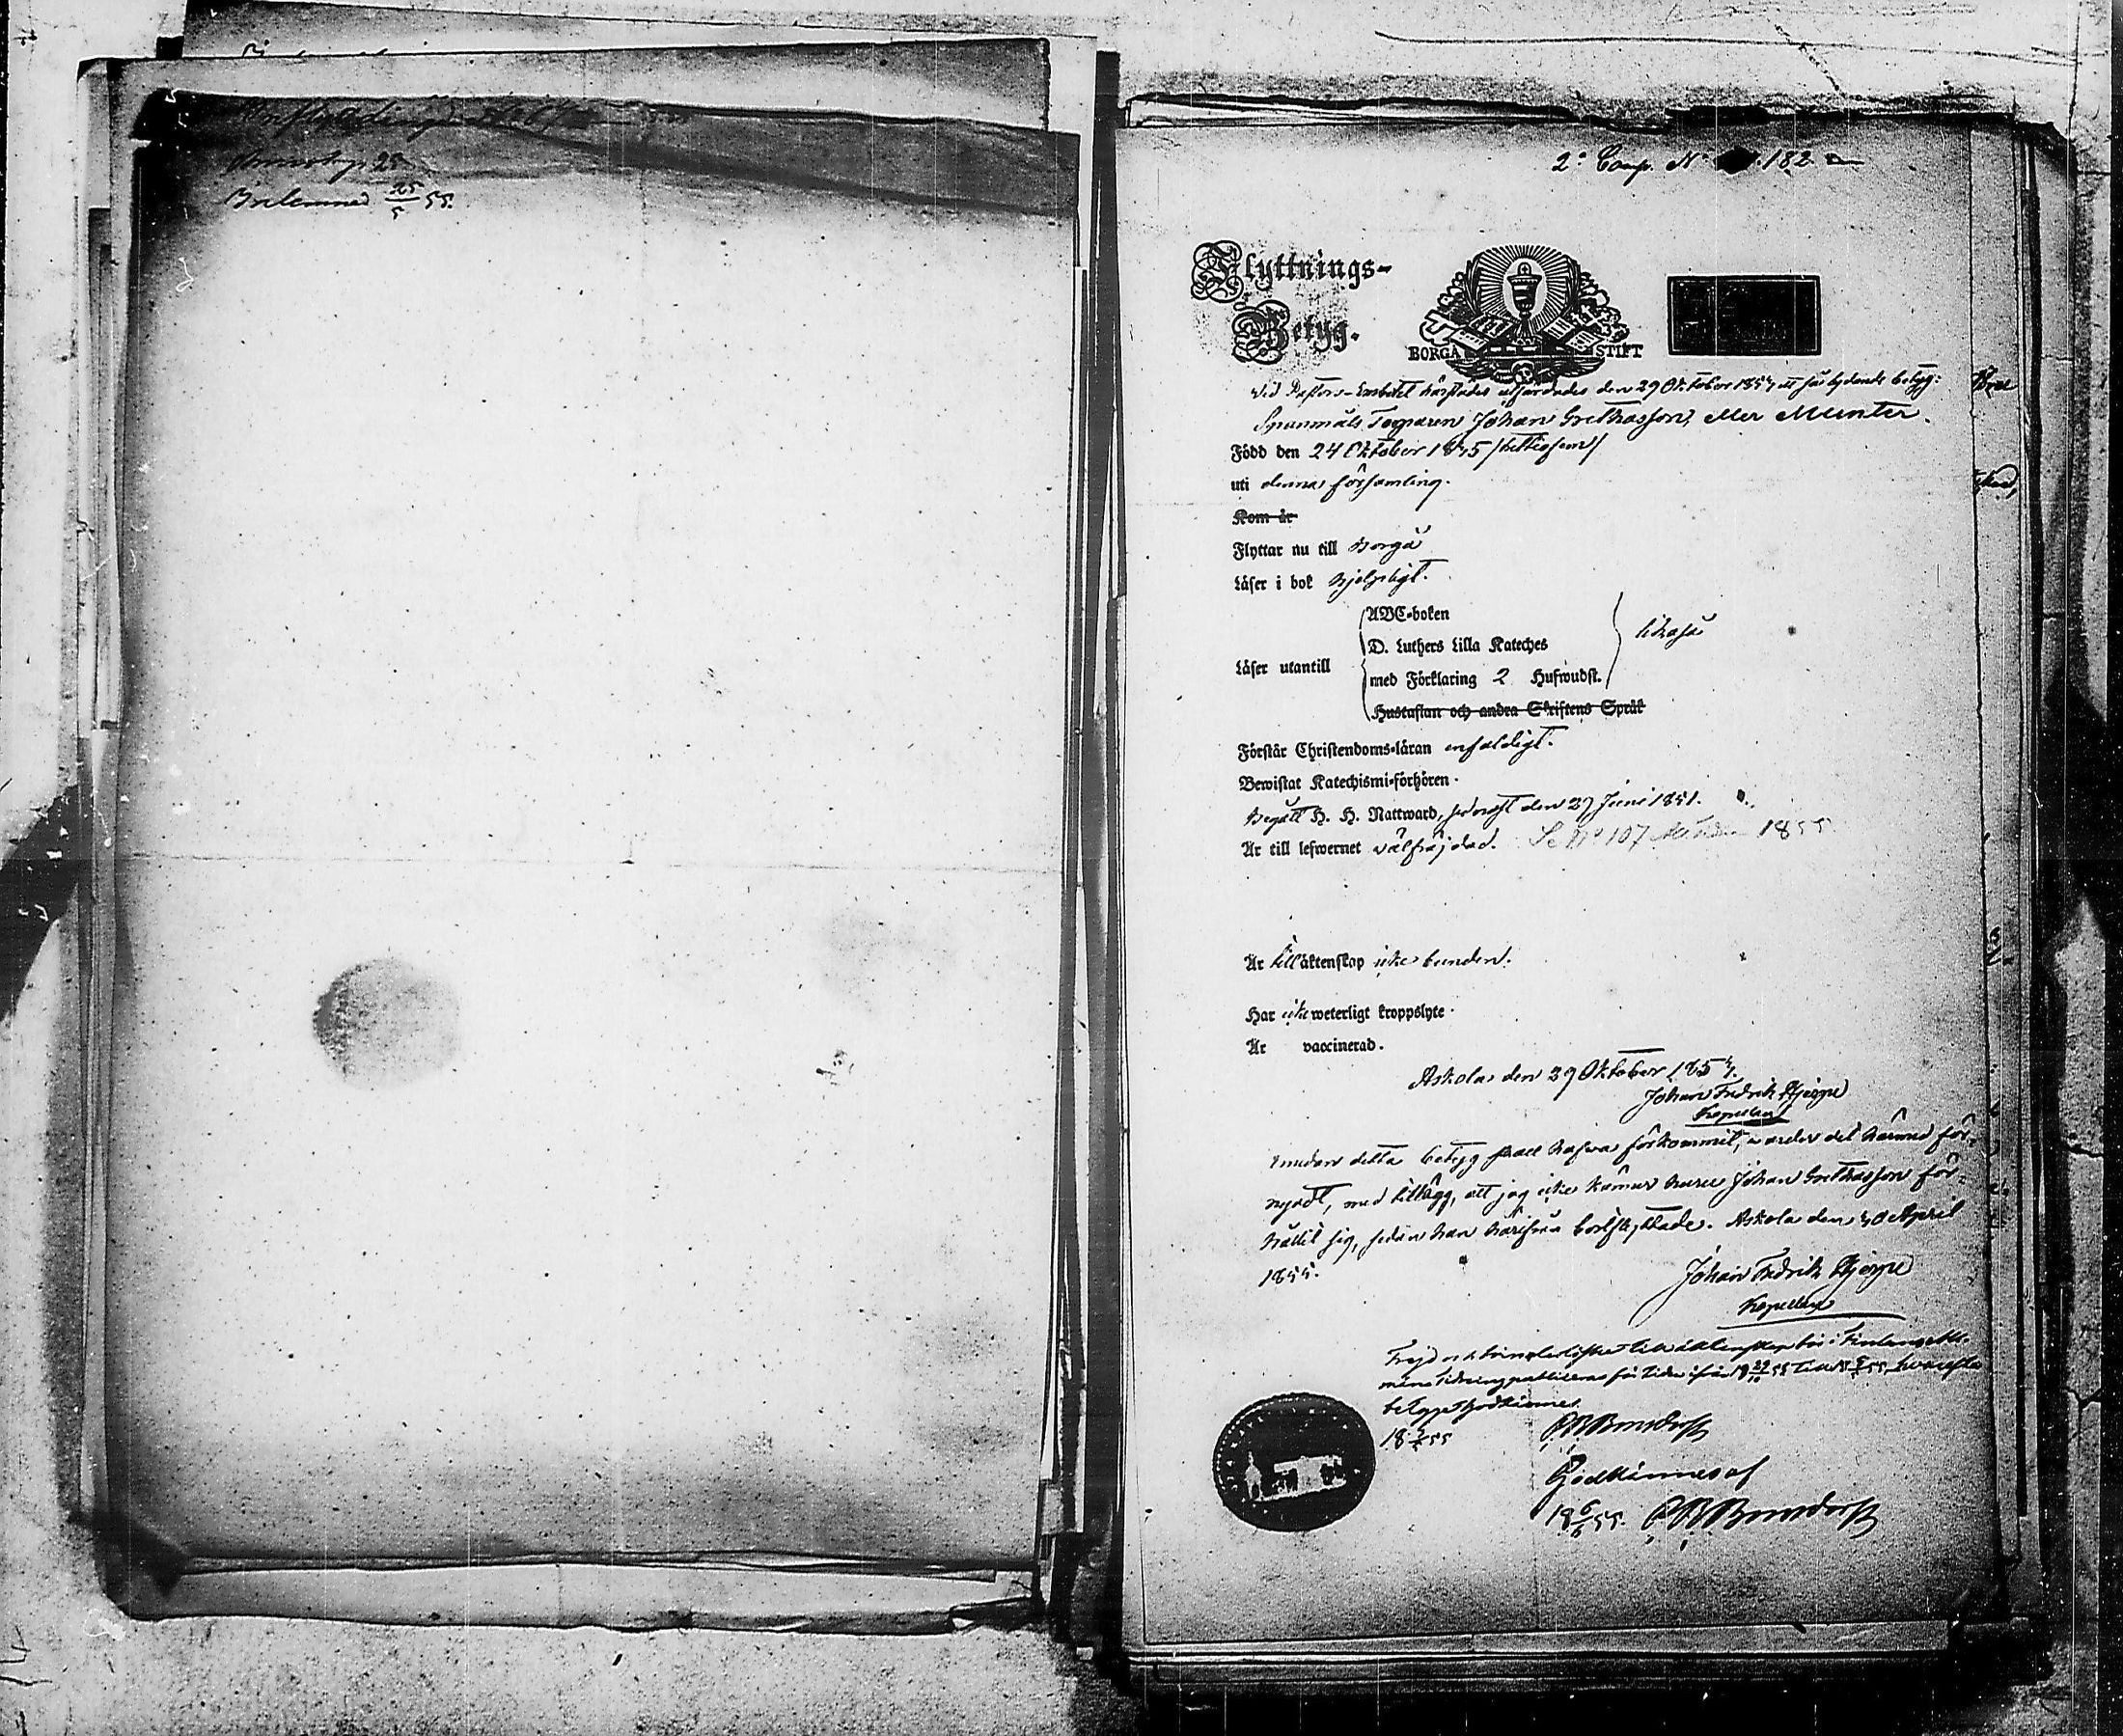 Inlemnad 25/5 55.
2a Comp. No 182
Flyttnings-
Betyg.
BORGÅ STIFT
Vid Pastors-Embetet härstädes utfärdades den 29 Oktober 1854 ett så lydande betyg:
Spanmåls Tagaren Johan Grethasson, eller Munter.
Född den 24 Oktober 1835 /trettiofem/
uti denna församling.
Kom år
Flyttar nu till Borgå
Läser i bok hjelpligt.
ABC-boken
D. Luthers Lilla Kateches
Läser utantill
med Förklaring 2 Hufwudst.
likaså
Hustaflan och andra Skriftens Språk
Förstår Christendoms-läran enfaldigt.
Bewistat Katechismi-förhören.
Begått H. H. Nattward, sednast den 27 Juni 1851.
Är till lefwernet välfräjdad. Se No 107 1855
Är till äktenskap icke bunden.
Har icke weterligt kroppslyte.
Är vaccinerad.
Askola den 29 Oktober 1854.
Johan Fredrik
Kapellan
Emedan detta betyg skall hafva förkommit, varder det härmed för-
nyadt, med tillägg, att jag icke känner huru Johan Grethasson för-
hållit sig, sedan han härifrån bortflyttade. Askola den 30 April
1855.
Johan Fredrik
Kapellan
betyget godkännes.
Godkännes af
18 6/6 55.